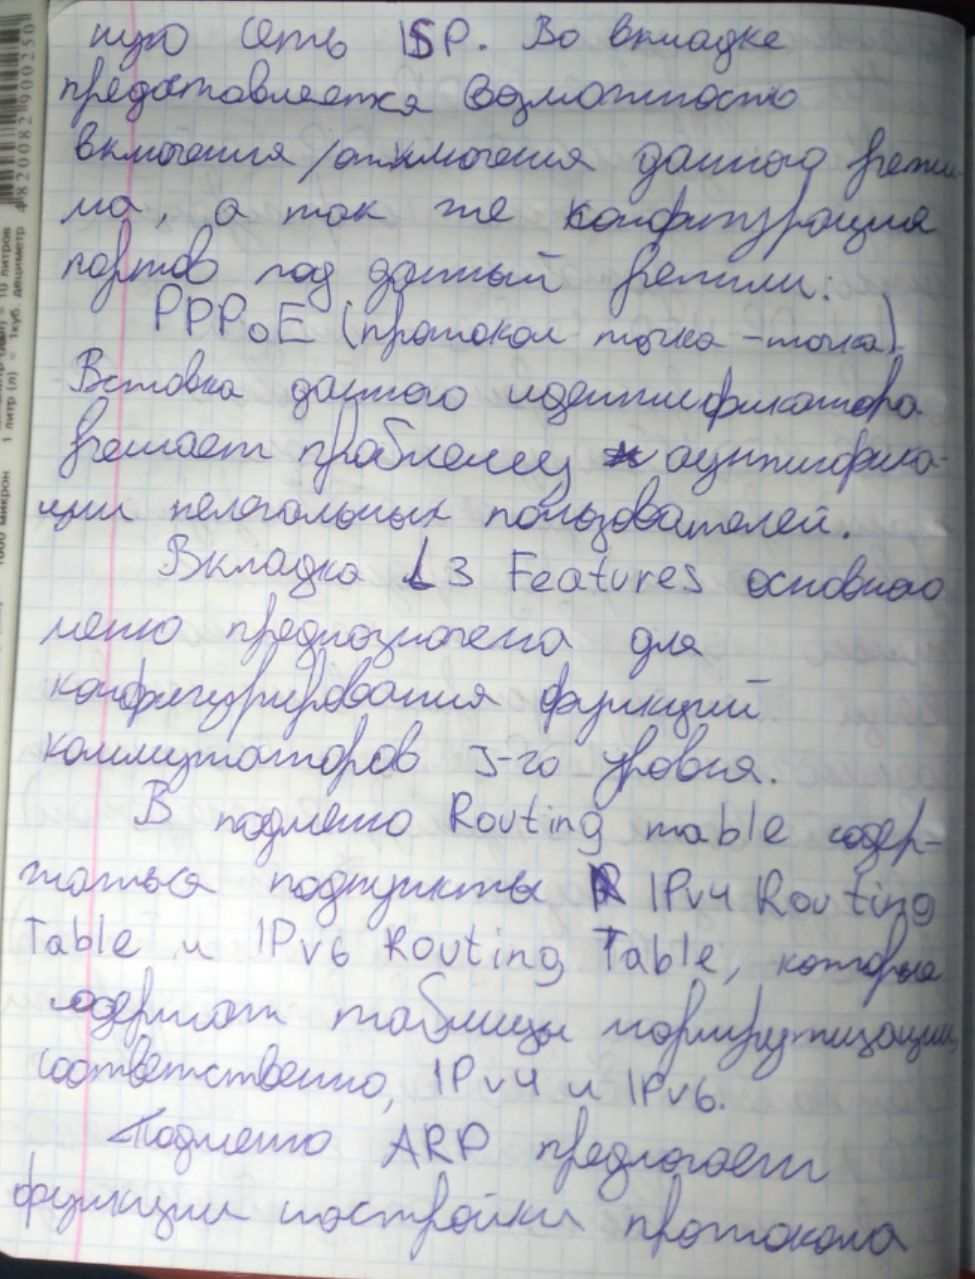 ную сеть ISP. Во вкладке
предоставляется возможностью
включения/отключения данного режи-
ма, а так же конфигурация
портов под данный режим:
PPPoE (протокол точка-точка).
Вставка данного идентификатора
решает проблему аунтифика-
ции нелегальных пользователей.
Вкладка L3 Features основного
меню предназначена для
конфигурирования функций
коммутаторов 3-го уровня.
В подменю Routing table содер-
жаться подпункты IPv4 Routing
Table и IPv6 Routing Table, которые
содержат таблицы маршрутизации,
соответственно, IPv4 и IPv6.
Подменю ARP предлагает
функции настройки протокола
4820082900250
10 литров
1 литр (л) = 1куб. дециметр
1000 микрон